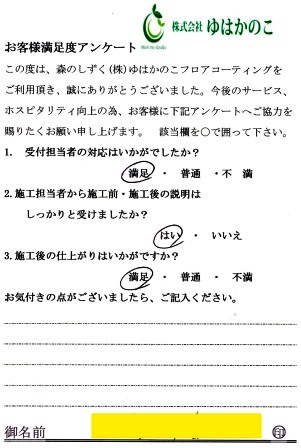 株式会社 ゆはかのこ
お客様満足度アンケート
この度は、森のしずく(株)ゆはかのこフロアコーティングを
ご利用頂き、誠にありがとうございました。今後のサービス、
ホスピタリティ向上の為、お客様に下記アンケートへご協力を
賜りたくお願い申し上げます。 該当欄を○で囲って下さい。
1. 受付担当者の対応はいかがでしたか?
満足 ・ 普通 ・不 満
2.施工担当者から施工前・施工後の説明は
しっかりと受けましたか?
はい ・ いいえ
3.施工後の仕上がりはいかがですか?
満足 ・ 普通 ・ 不満
お気付きの点がございましたら、ご記入ください。
御名前 ㊞